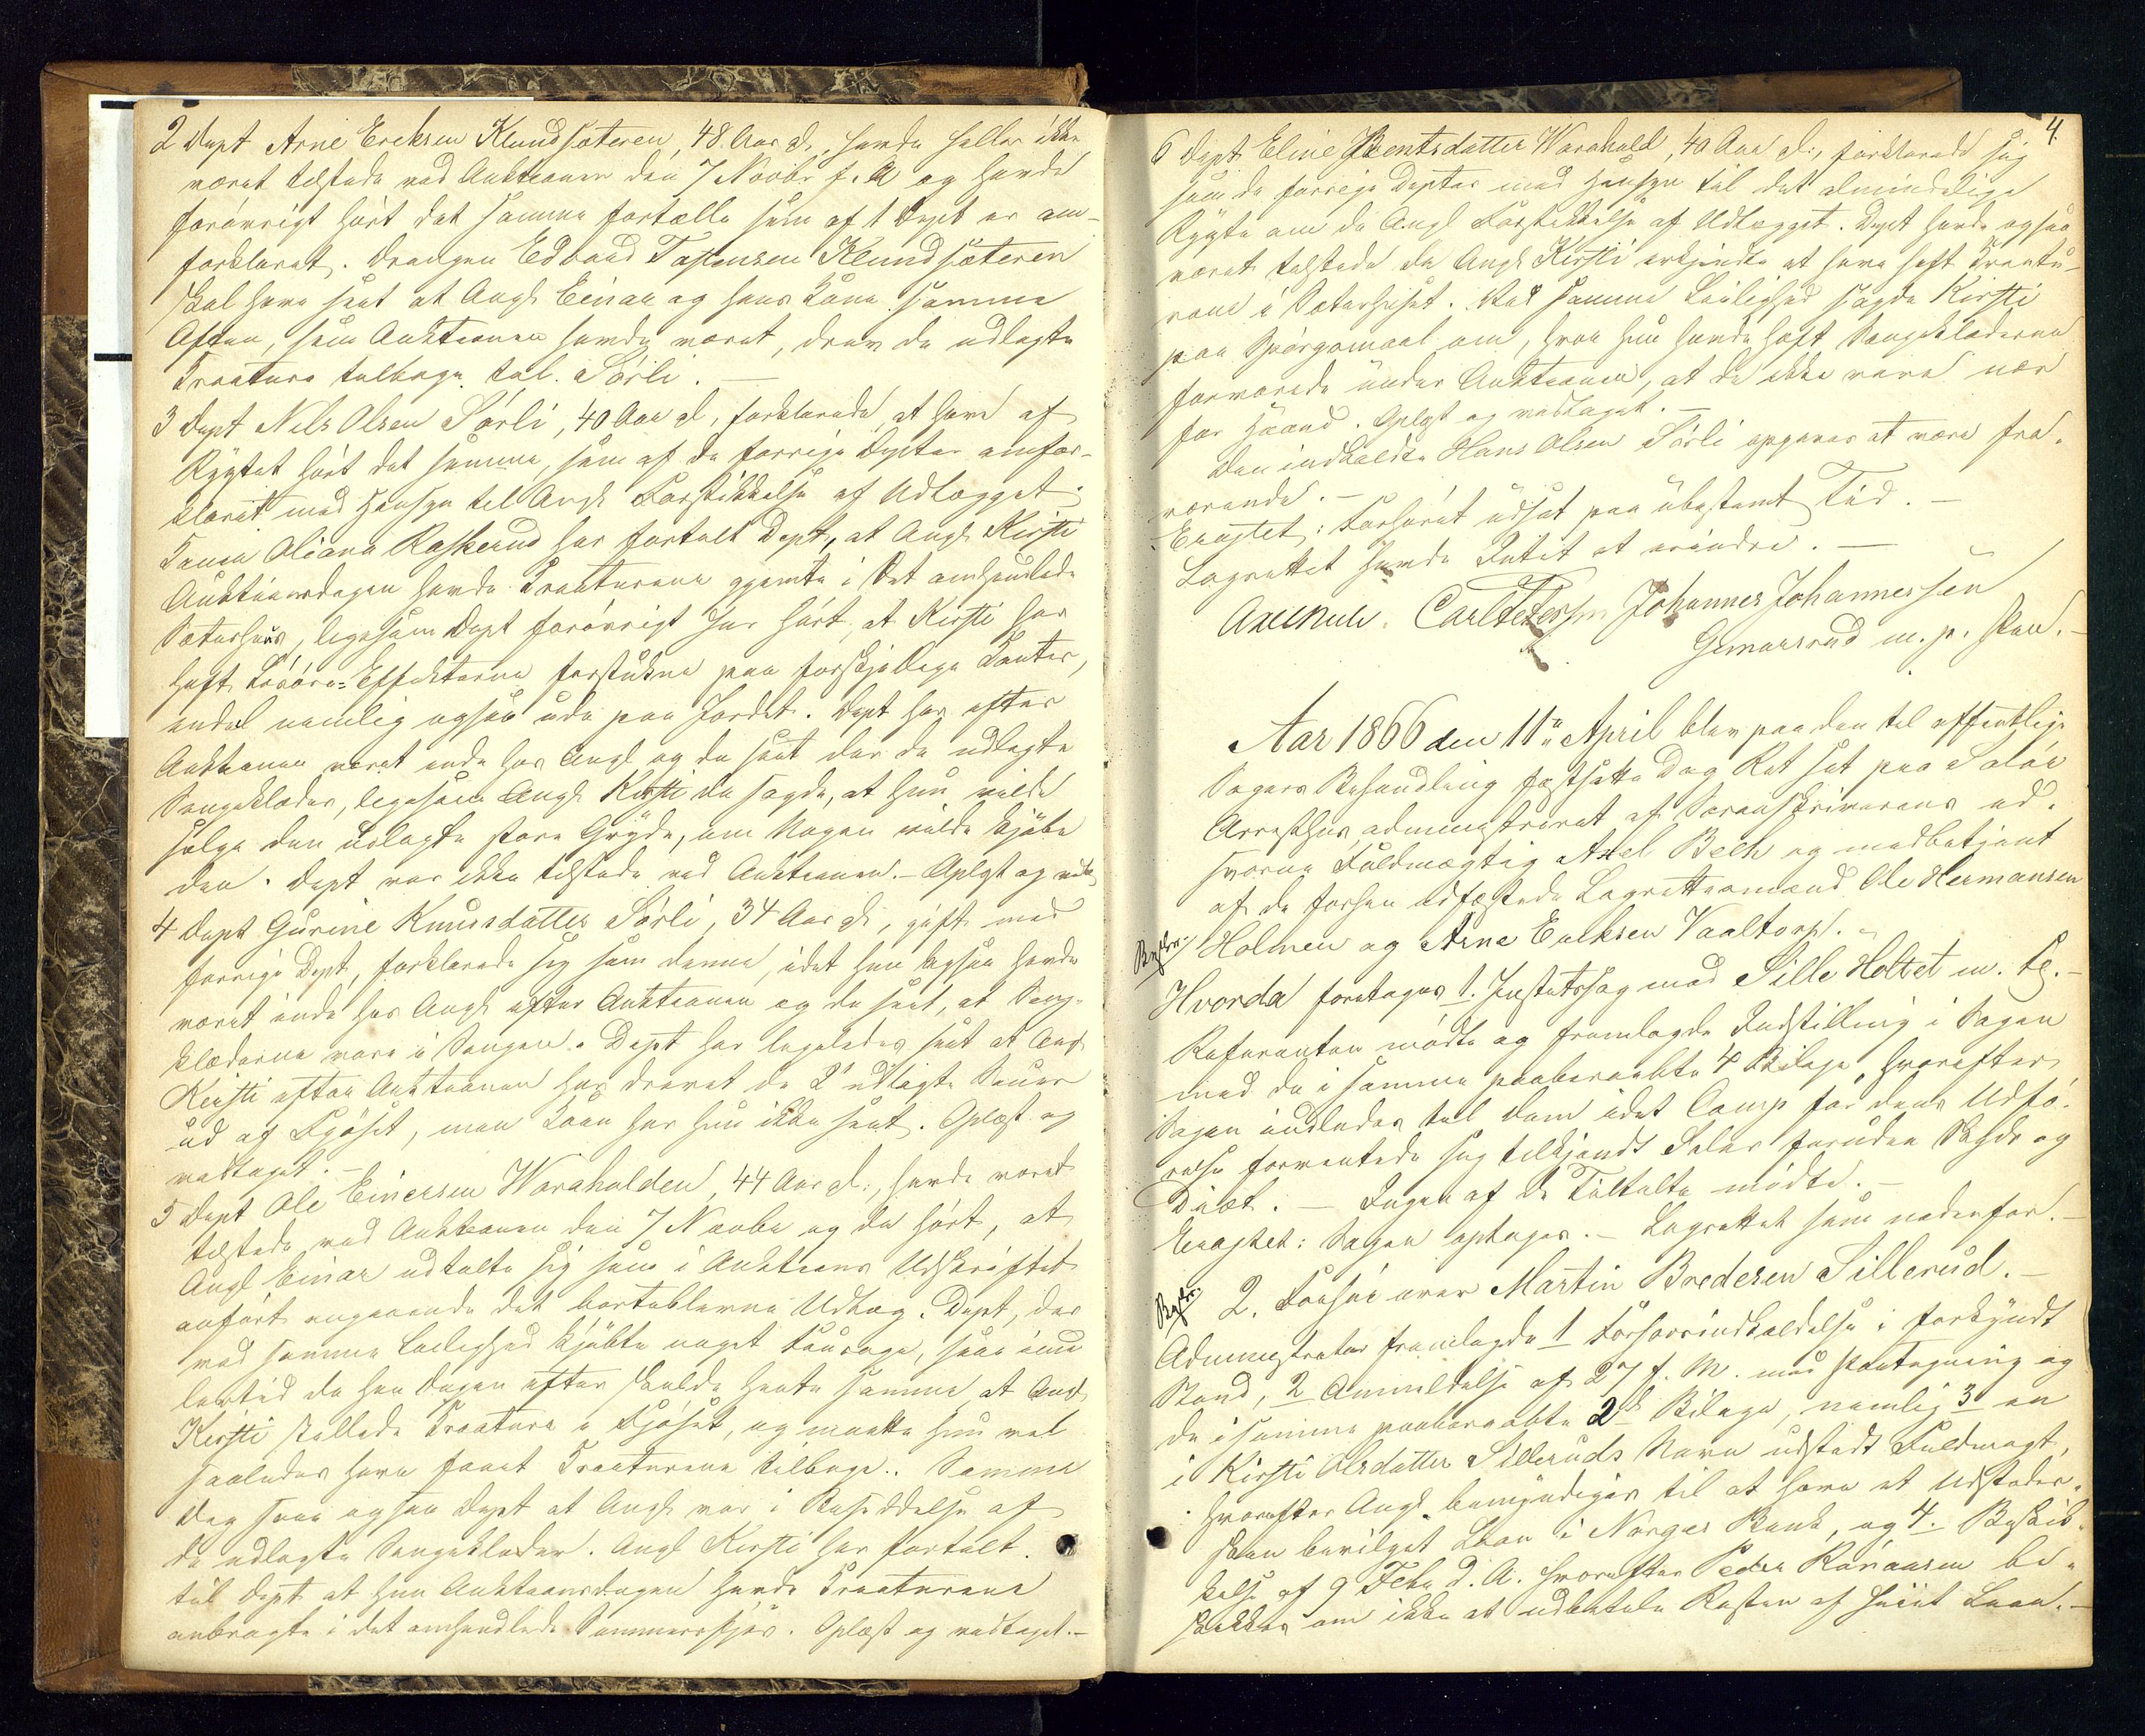 2 Dept Arne Ereksen Klundsæteren, 48 Aar gl., havde heller ikke
været tilstede ved Auktionen den 7 Novbr f. A og havde
forøvrigt hørt det samme fortælle som af 1 Dept er om-
forklaret. Drengen Edvard Tostensen Klundsæteren
skal have seet at Angl Einar og hans Kone samme
Aften, som Auktionen havde været, drev de udlagte
Kreature tilbage til Sörli. —
3 Dept Nils Olsen Sörli, 40 Aar gl, forklarede, at have af
Rygtet hørt det samme, som af de forrige Depter omfor-
klaret med Hensyn til Angls Forstikkelse af Udlægget.
Konen Oliana Raskerud har fortalt Dept, at Angl Kirsti
Auktionsdagen havde Kreaturene gjemte i det omhandlede
Sæterhuus, ligesom Dept forøvrigt har hørt, at Kirsti har
haft Løsøre-Effekterne forstukne paa forskjellige Kanter,
endel nemlig ogsaa ude paa Jordet. Dept har efter
Auktionen været inde hos Angl og da seet der de udlagte
Sengeklæder, ligesom Angl Kirsti da sagde, at hun vilde
sælge den udlagte store Gryde, om Nogen vilde kjøbe
den. Dept var ikke tilstede ved Auktionen. — Oplæst og vedt.
4 Dept Gurine Knudsdatter Sörli, 34 Aar gl, gift med
forrige Dept, forklarede sig som denne, idet hun ogsaa havde
været inde hos Angl efter Auktionen og da seet, at Seng-
klæderne vare i Sengen. Dept har ligeledes seet at Angl
Kirsti efter Auktionen har drevet de 2 udlagte Sauer
ud af Fjøset, men Koen har hun ikke seet. Oplæst og
vedtaget. —
5 Dept Ole Einersen Waraholden, 44 Aar gl., havde været
tilstede ved Auktionen den 7 Novbr og da hørt, at
Angl Einar udtalte sig som i Auktions Udskriftet
anført angaaende det bortblevne Udlæg. Dept, der
ved samme Leilighed kjøbte noget , saa
da han Dagen efter skulde hente samme, at Angl
Kirsti stellede Kreature i Fjøset, og maatte hun vel
saaledes have faaet Kreaturene tilbage. Samme
Dag saa ogsaa Dept at Angl var i Besiddelse af
de udlagte Sengeklæder. Angl Kirsti har fortalt
til Dept at hun Auktionsdagen havde Kreaturene
anbragte i det omhandlede Sommerfjøs. Oplæst og vedtaget. —
4.
6 Dept Eline Bentsdatter Warahold, 40 Aar gl., forklarede sig
som de forrige Depter med Hensyn til det almindelige
Rygte om de Angl Forstikkelse af Udlægget. Dept havde ogsaa
været tilstede da Angl Kirsti erkjendte at have haft Kreatu-
rene i Sæterhuset. Ved samme Leilighed sagde Kirsti
paa Spørgsmaal om, hvor hun havde haft Sengeklæderne
forvarede under Auktionen, at de ikke vare nær
for Haand. Oplæst og vedtaget. —
Den indkaldte Hans Olsen Sörli opgaves at være fra-
værende. —
Eragtet: Forhøret udsat paa ubestemt Tid. —
Lagrettet havde Intet at erindre. —
Axel Belh. Carl Petersen Johannes Johannessen
Gunarsrud m. p. Pen. —
Aar 1866 den 11te April blev paa den til offentlige
Sagers Behandling fastsatte Dag Ret sat paa Solør
Arresthus, administreret af Sorenskriverens ed-
svorne Fuldmægtig Axel Belh og medbetjent
af de forhen edfæstede Lagrettesmænd Ole Hermansen
Holmen og Arne Ereksen Vaaltorp. —
Hvorda foretages 1. Justitssag mod Sille Holtet m. Fl. —
Referenten mødte og fremlagde Indstilling i Sagen
med de i samme paaberaabte 4 Bilage, hvorefter
Sagen indlodes til Dom idet Camp for dens Udfø-
relse formentede sig tilkjendt Salær foruden Skyds og
Diæt. — Ingen af de Tiltalte mødte. —
Eragtet: Sagen optages. — Lagrettet som nedenfor. —
2. Forhør over Martin Bredesen Sillerud. —
Administrator fremlagde 1 Forhørsindkaldelse i forkyndt
Stand, 2 Anmeldelse af 27 f. M. med Paategning og
de i samme paaberaabte 2de Bilage, nemlig 3 en
i Kirsti Olsdatter Silleruds Navn udstedt Fuldmagt,
hvorefter Angl bemyndiges til at hæve et Udstede-
sken bevilget Laan i Norges Bank, og 4. Beskik-
kelse af 9 Febr d. A. hvorefter Peder Rønaasen be-
skikkes om ikke at udbetale Resten af hiint Laan. —